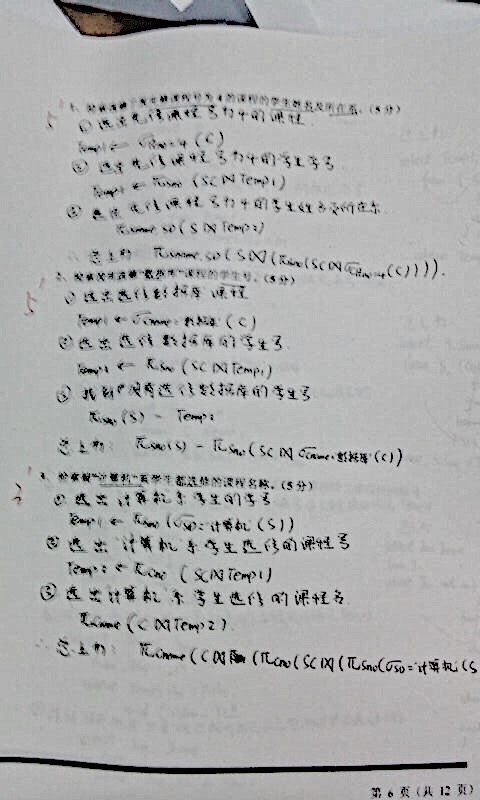 5'
的课程的学生姓名及所在系。(5分)
① 选出先修课程号为4的课程.
Temp1 ← σPcno=4 (C)
② 选出先修课程号为4的学生学号.
Temp2 ← πSno (SC⋈Temp1)
③ 选出先修课程号为4的学生姓名及所在系.
πSname,SD (S⋈Temp2)
综上为: πSname,SD (S⋈(πSno(SC⋈σPcno=4(C)))).
5'
检索没有选修"数据库"课程的学生号。(5分)
① 选出选修数据库课程
Temp1 ← σCname='数据库' (C)
② 选出选修数据库的学生号.
Temp2 ← πSno (SC⋈Temp1)
③ 找到没有选修数据库的学生号
πSno (S) - Temp2
综上为: πSno(S) - πSno(SC⋈σCname='数据库'(C))
4、检索被"计算机"系学生都选修的课程名称。(5分)
① 选出计算机系学生的学号
Temp1 ← πSno (σSD='计算机' (S))
② 选出计算机系学生选修的课程号
Temp2 ← πCno (SC⋈Temp1)
③ 选出计算机系学生选修的课程名
πCname (C⋈Temp2).
∴ 综上为: πCname (C⋈ (πCno(SC⋈(πSno(σSD='计算机'(S
第 6 页(共 12 页)